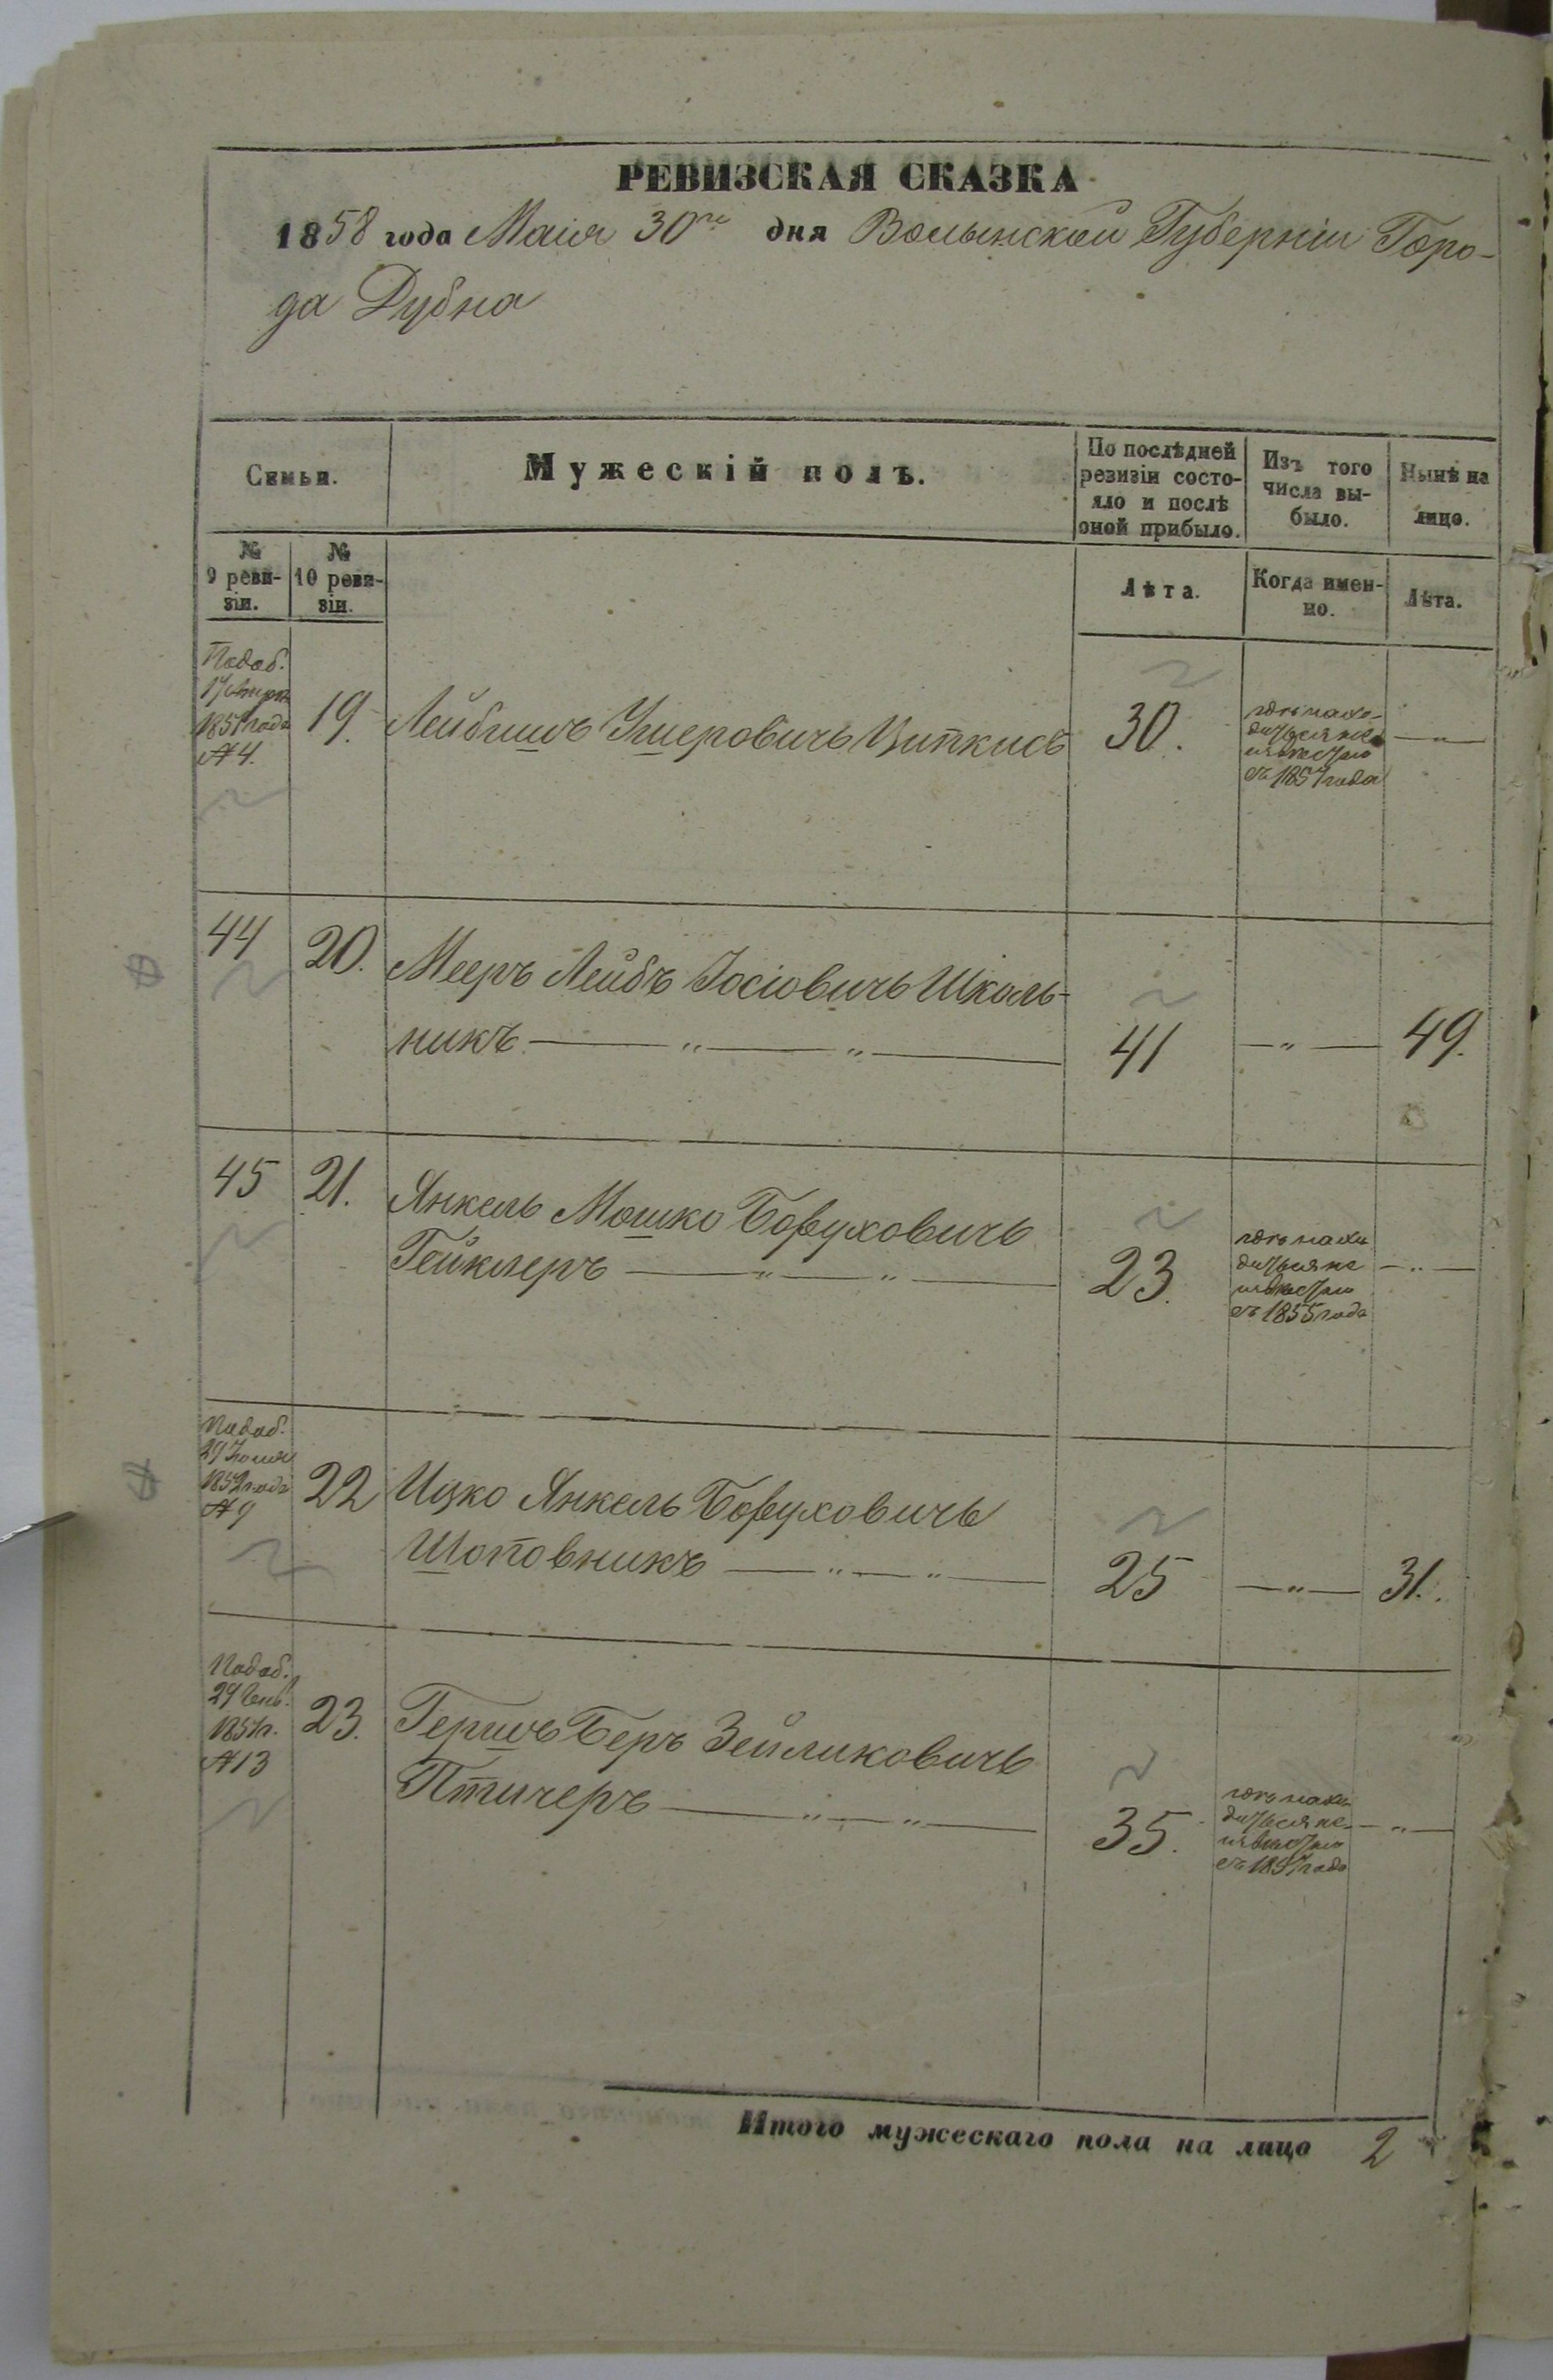 РЕВИЗСКАЯ СКАЗКА
1858 года Маія 30го дня Волынской Губерніи Горо-
да Дубна
Семьи.
Мужескій полъ.
По послѣдней
ревизіи состо-
яло и послѣ
оной прибыло.
Изъ того
числа вы-
было.
Нынѣ на
лицо.
№
9 реви-
зіи.
№
10 реви-
зіи.
Лѣта.
Когда имен-
но.
Лѣта.
Подоб.
17
1851 года
№ 4.
19.
Лейбишъ Умеровичъ Циткисъ
30.
гдѣ нахо-
дится не
извѣстно
съ 1857 года
— „ —
44
20.
Мееръ Лейбъ Іосіовичъ Школь-
никъ — „ — „ —
41
— „ —
49.
45
21.
Янкель Мошко Боруховичъ
Гейклеръ — „ — „ —
23.
гдѣ нахо
дится не
извѣстно
съ 1855 года
— „ —
Подоб.
29
года
№ 9
22
Ицко Янкель Боруховичъ
Шоповникъ — „ — „ —
25
— „ —
31.
Подоб.
29
1851 г.
№ 13
23.
Гершъ Беръ Зейликовичъ
Птичеръ — „ — „ —
35.
гдѣ нахо
дится не
извѣстно
съ 1857 года
— „ —
Итого мужескаго пола на лицо 2